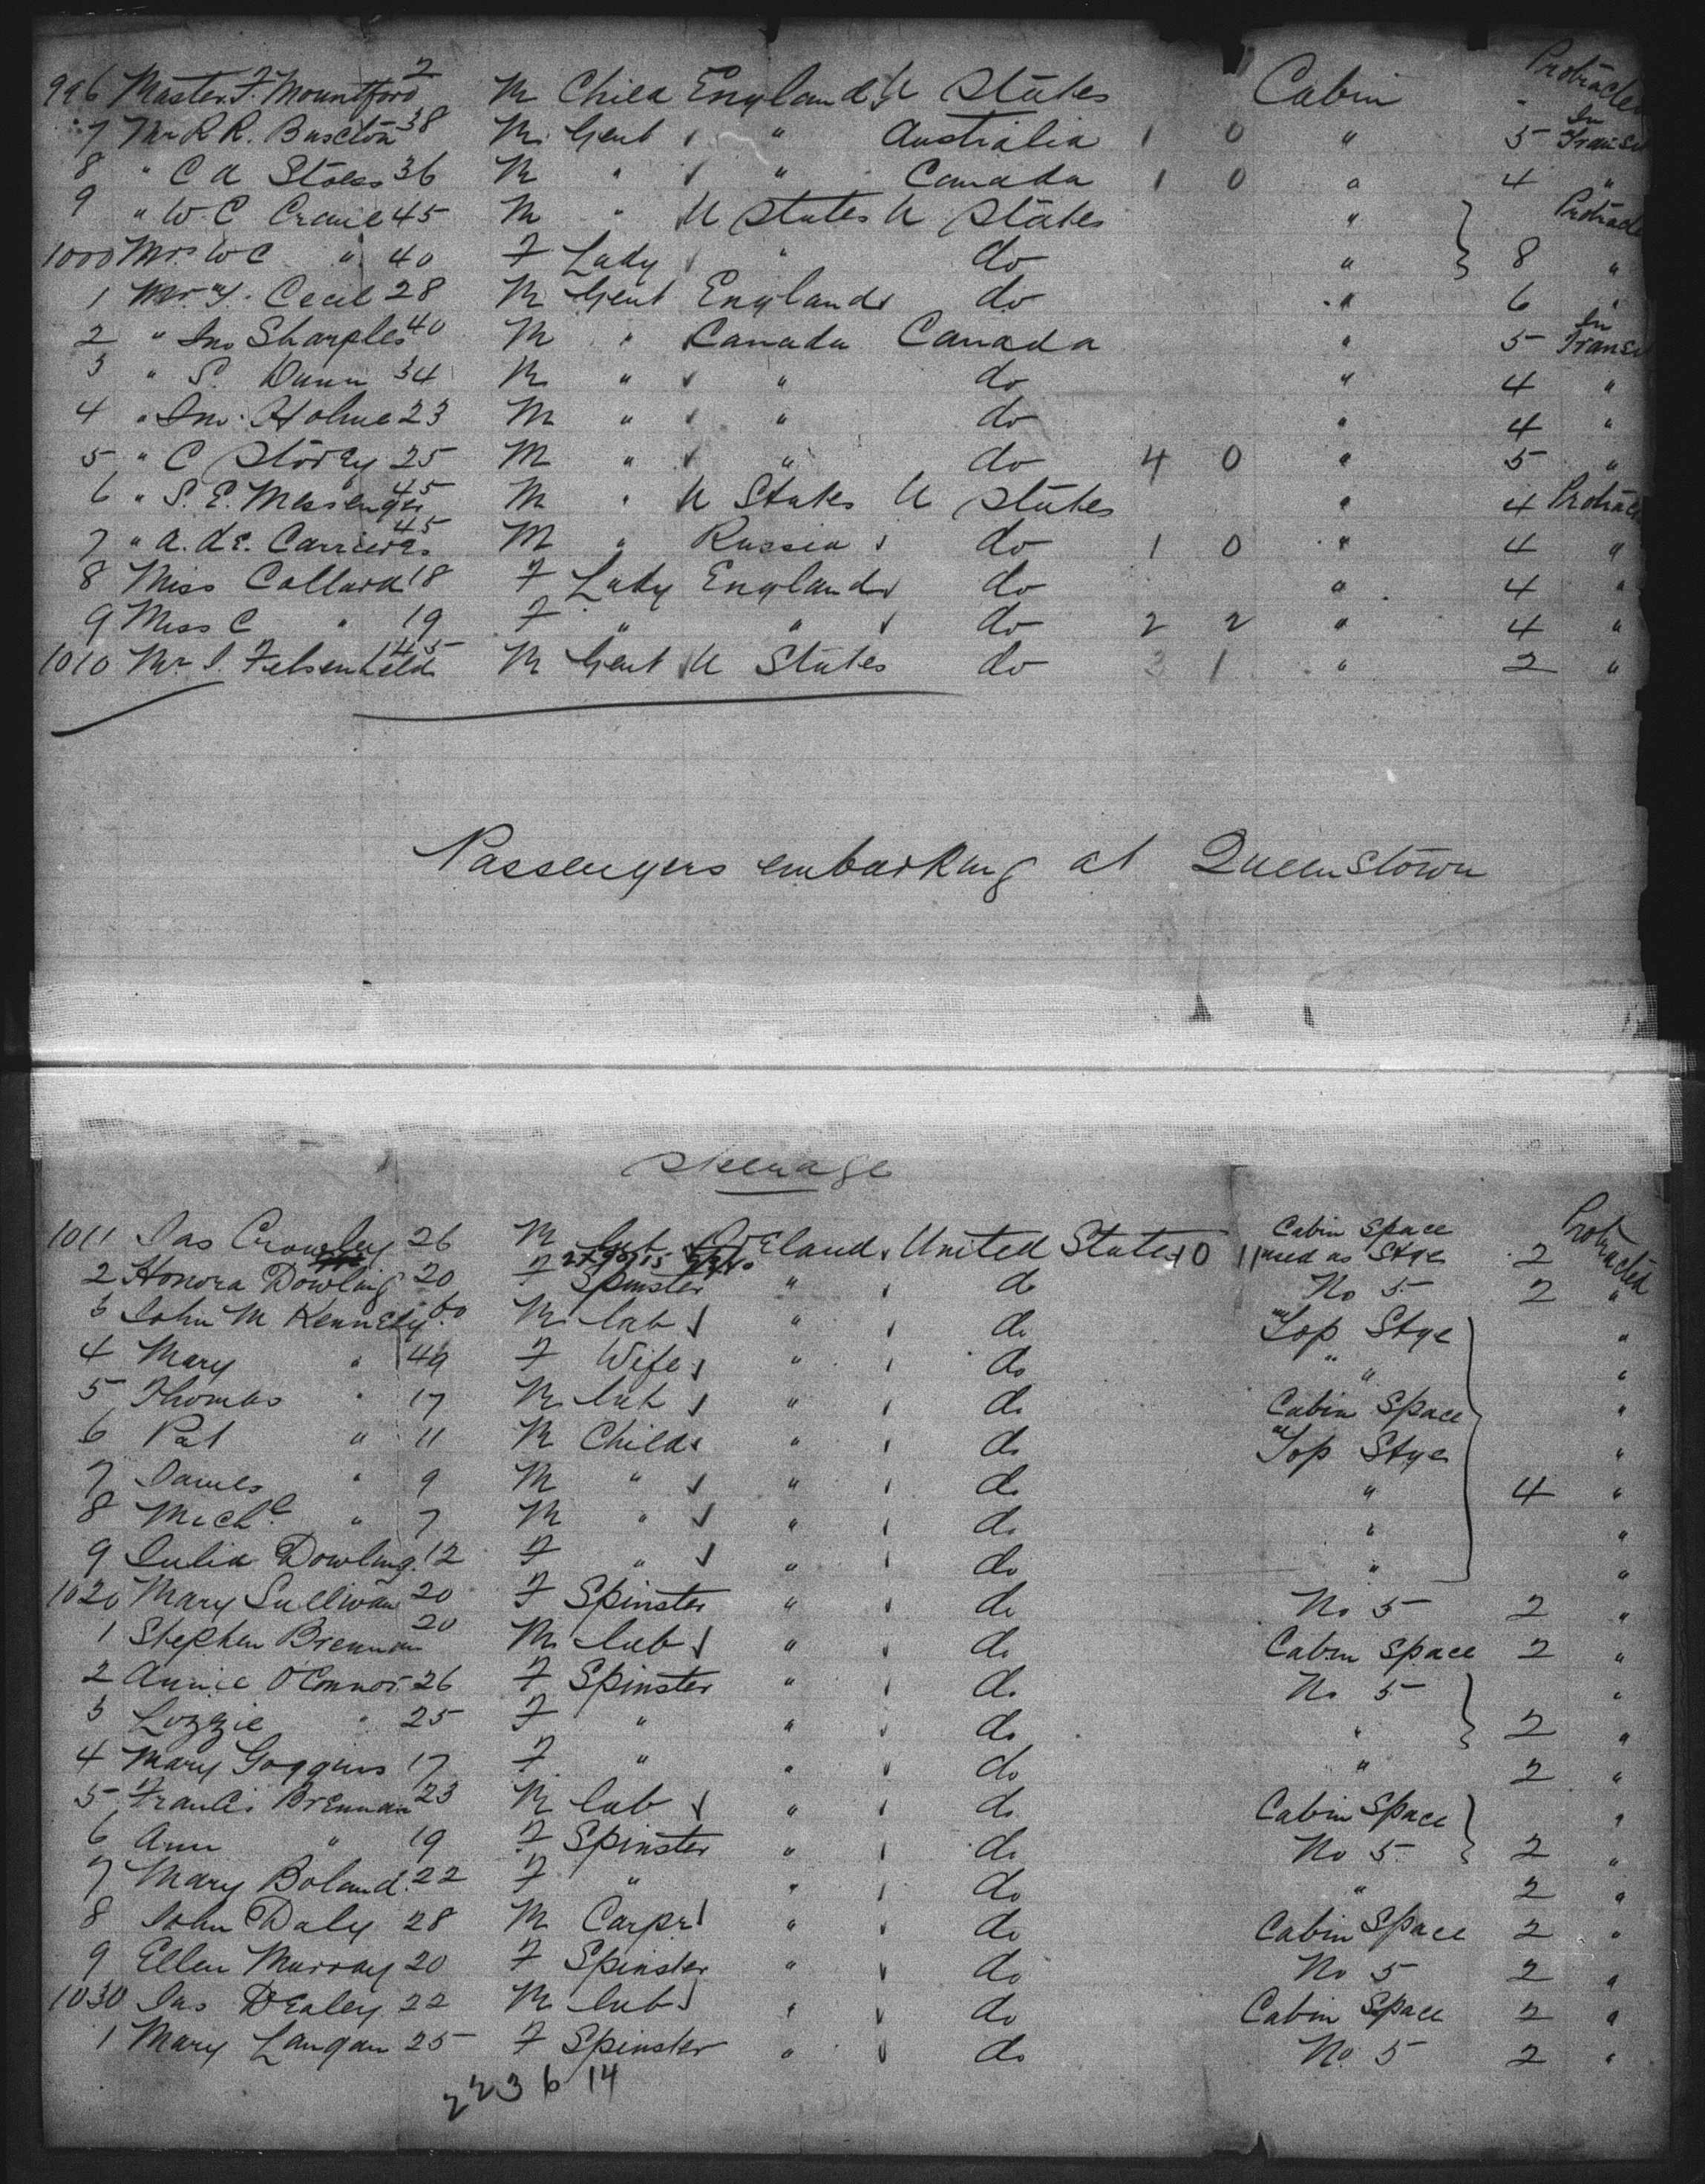 996 Master F. Mountford 2 M Child England U States Cabin Protracted
7 Mr R R. Buscton 38 M Gent " Australia 1 0 " 5 In Transit
8 " C A Stokes 36 M " " Canada 1 0 " 4 "
9 " W. C Crane 45 M " U States U States " Protracted
1000 Mrs W C " 40 F Lady " do " 8 "
1 Mr. Cecil 28 M Gent England do " 6 "
2 " Jno Sharples 40 M " Canada Canada " 5 In Transit
3 " S. Dunn 34 M " " do " 4 "
4 " Jno. Holme 23 M " " do " 4 "
5 " C Storey 25 M " " do 4 0 " 5 "
6 " S. E. Messenger 45 M " U States U States " 4 Protracted
7 " A. de. 45 M " Russia do 1 0 " 4 "
8 Miss Collard 18 F Lady England do " 4 "
9 Miss C " 19 F " " do 2 2 " 4 "
1010 Mr I. Felsenheld 45 M Gent U States do 3 1 " 2 "
Passengers embarking at Queenstown
Steerage
1011 Jas Crowley 26 M lab Ireland United States 10 11 Cabin Space used as Stge 2 Protracted
2 Honora Dowling 20 F Spinster " do No 5 2 "
3 John M Kennedy 50 M lab " do Top Stge "
4 Mary " 49 F Wife " do " " "
5 Thomas " 17 M lab " do Cabin Space "
6 Pat " 11 M Child " do Top Stge "
7 James " 9 M " " do " 4 "
8 Michl " 7 M " " do " "
9 Julia Dowling 12 F " " do " "
1020 Mary Sullivan 20 F Spinster " do No 5 2 "
1 Stephen Brennan 20 M lab " do Cabin Space 2 "
2 Annie O'Connor 26 F Spinster " do No 5 "
3 Lizzie " 25 F " " do " 2 "
4 Mary Goggins 17 F " " do " 2 "
5 Francis Brennan 23 M lab " do Cabin Space "
6 Ann " 19 F Spinster " do No 5 2 "
7 Mary Boland 22 F " " do " 2 "
8 John Daly 28 M Carpr " do Cabin Space 2 "
9 Ellen Murray 20 F Spinster " do No 5 2 "
1030 Jas Dealey 22 M lab " do Cabin Space 2 "
1 Mary Langan 25 F Spinster " do No. 5 2 "
2 2 3 6 14